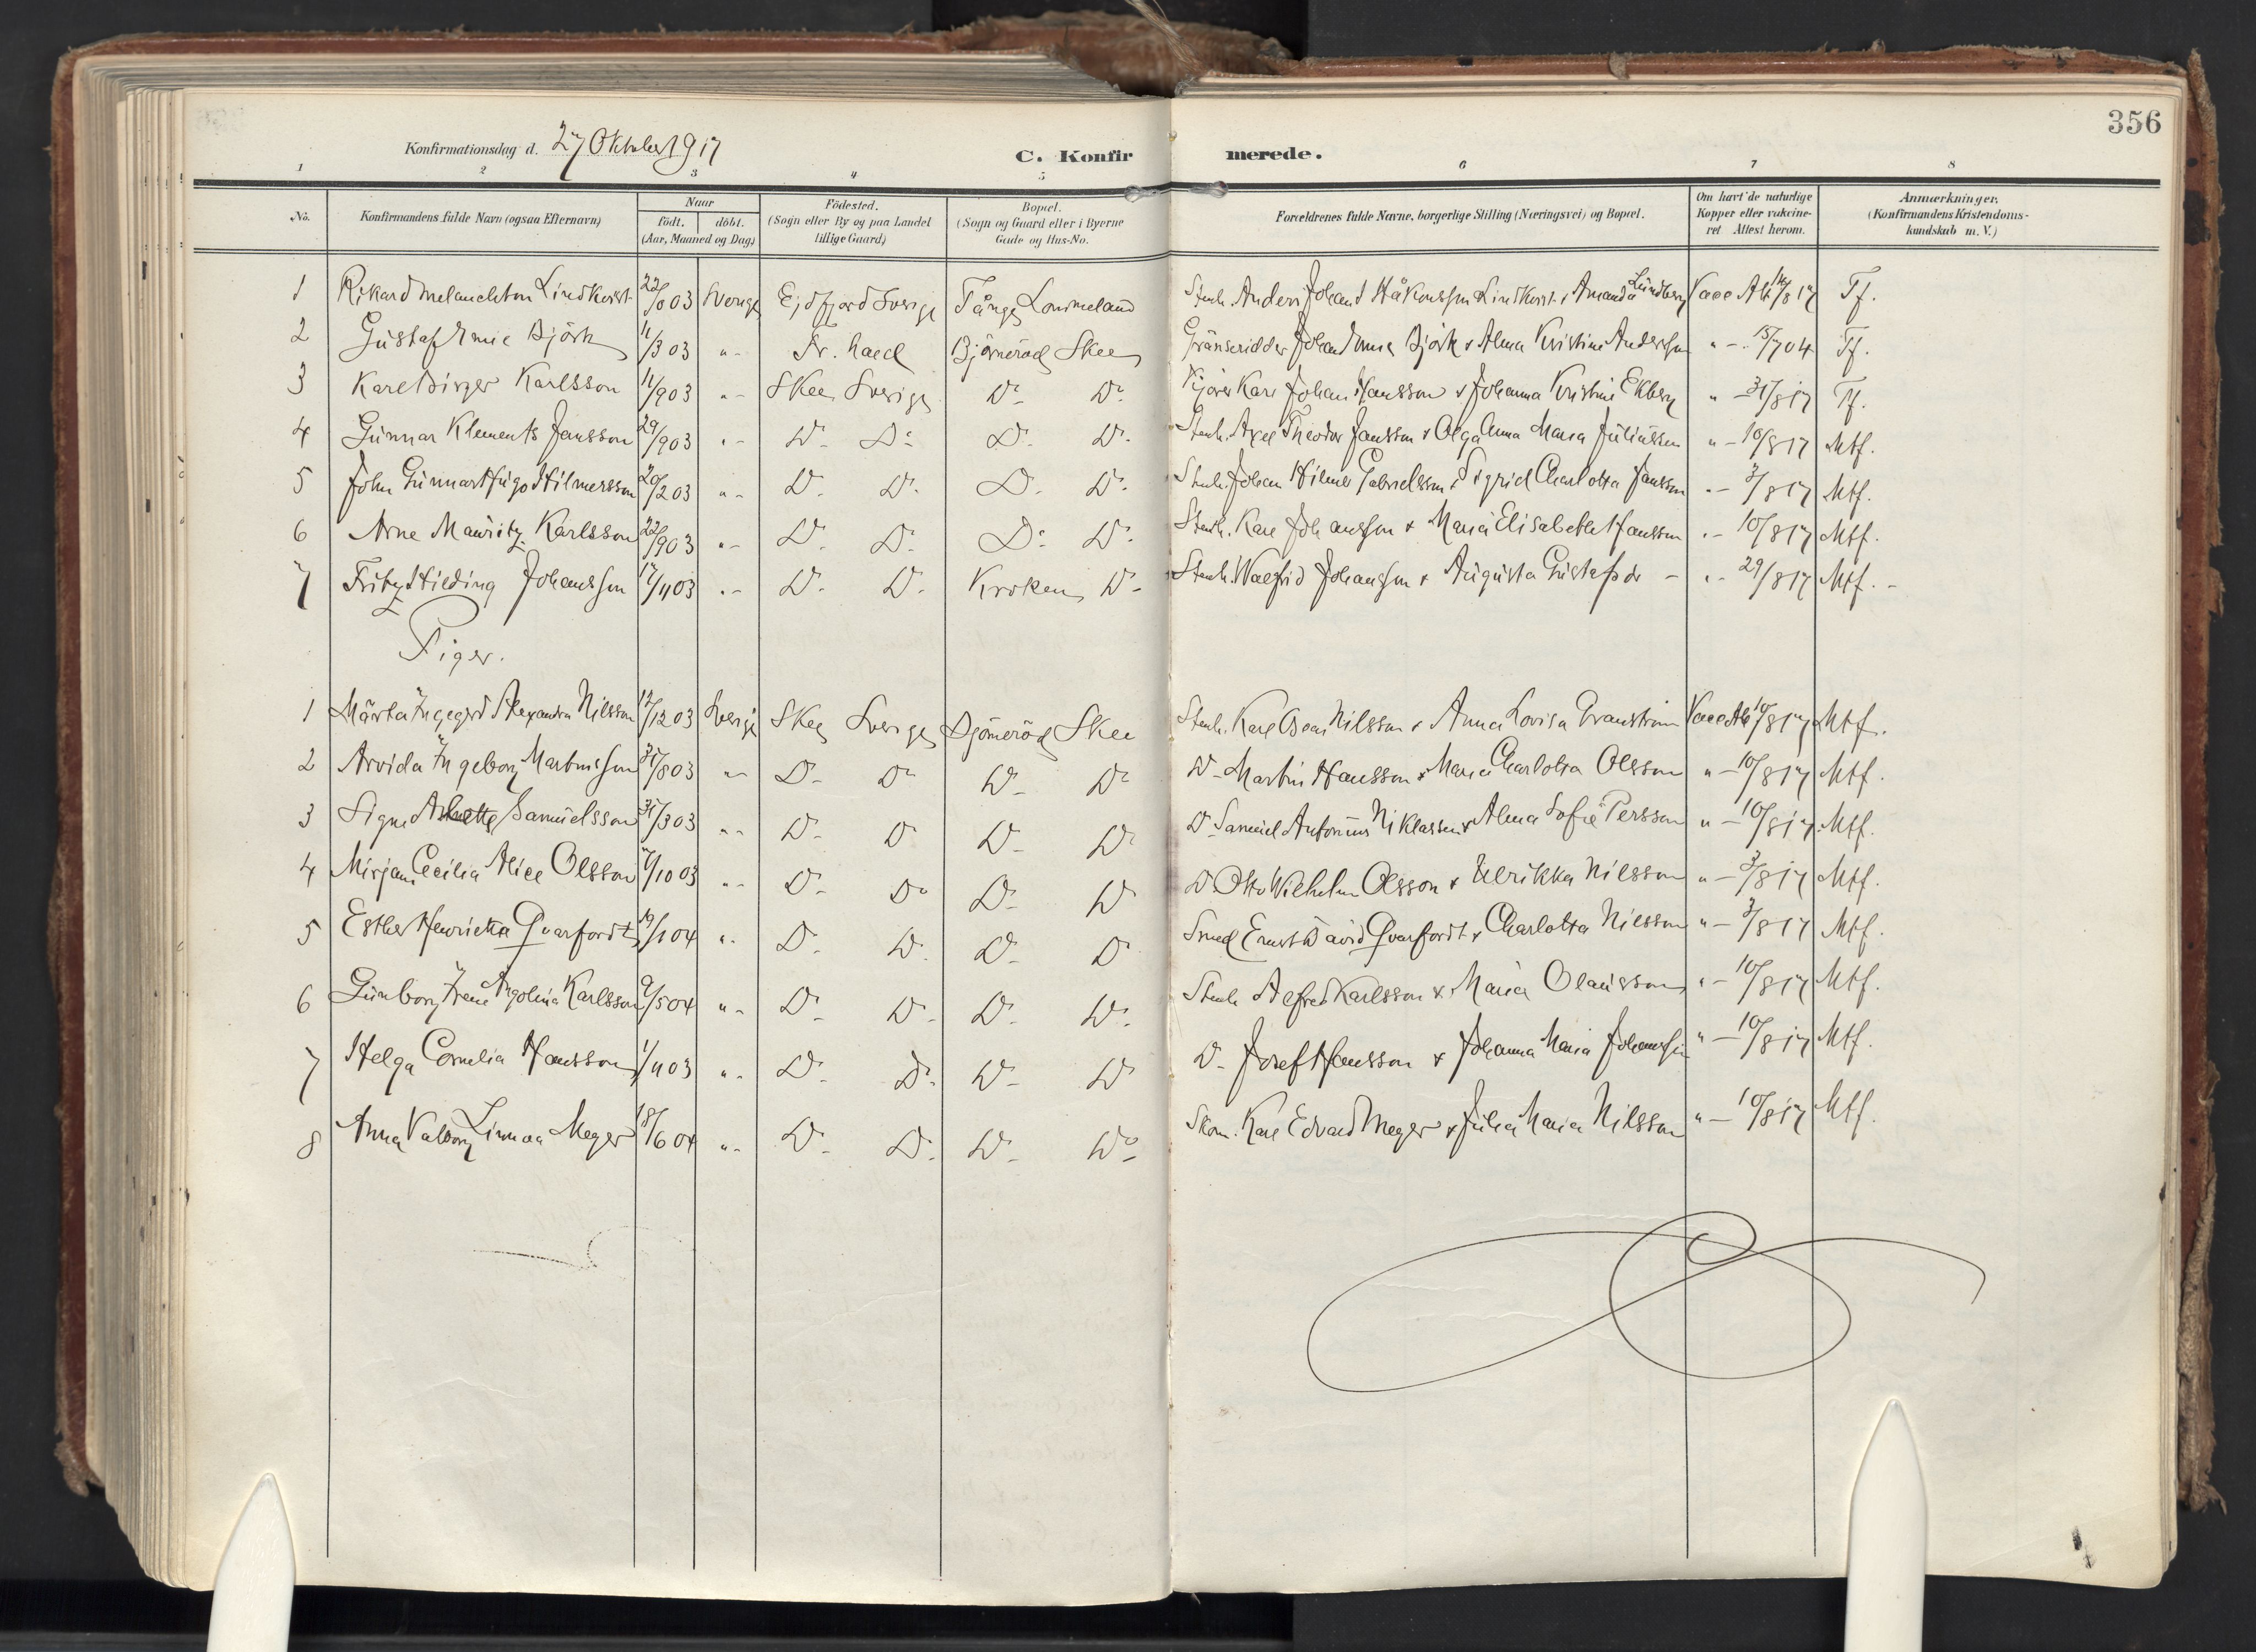 356
Konfirmationsdag d. 27 Oktober 1917
C. Konfirmerede.
1 2 3 4 5 6 7 8
No. | Konfirmandens fulde Navn (ogsaa Efternavn) | Naar født. døbt. (Aar, Maaned og Dag) | Fødested. (Sogn eller By og paa Landet tillige Gaard) | Bopæl. (Sogn og Gaard eller i Byerne Gade og Hus-No. | Forældrenes fulde Navne, borgerlige Stilling (Næringsvei) og Bopæl. | Om havt de naturlige Kopper eller vakcineret Attest herom. | Anmærkninger, (Konfirmandens Kristendomskundskab m. V.)
1 Rikard Melanchton Lindkvist 22/8 03 Sverige Ejdfjord Sverige Tånge Lommeland Stenh. Anders Johan Håkonsson Lindkvist & Amanda Lundberg Vacc Att 14/8 17 Tf.
2 Gustaf Emil Björk 11/3 03 " - Fr. hald Björneröd Skee Gränseridder Johan Emil Björk & Alma Kristine Andersson " - 15/7 04 Tf.
3 Karl Birger Karlsson 11/9 03 " - Skee Sverige Do Do Kjører Karl Johan Hansson & Johanna Kristine Ekberg " - 31/8 17 Tf.
4 Gunnar Klements Jansson 29/9 03 " - Do Do Do Do Stenh. Axel Theodor Jansson & Olga Anna Maria Juliussen " - 10/8 17 Mtf.
5 John Gunnar Hugo Hilmersson 20/2 03 " - Do Do Do Do Stenh. Johan Hilmer Gabrielsson & Sigrid Charlotta Jansson " - 3/8 17 Mtf.
6 Arne Mauritz Karlsson 22/9 03 " - Do Do Do Do Stenh. Karl Johansson & Maria Elisabeth Hansson " - 10/8 17 Mtf.
7 Fritz Hilding Johansson 17/11 03 " - Do Do Kroken Do Stenh. Walfrid Johansson & Augusta Gustafsdr - " - 29/8 17 Mtf. -
Piger.
1 Märta Ingegerd Alexandra Nilsson 12/12 03 Sverige Skee Sverige Björneröd Skee Stenh. Karl Oscar Nilsson & Anna Lovisa Granström Vacc Att 10/8 17 Mtf.
2 Arvida Ingeborg Martinsson 31/8 03 " - Do Do Do Do Do Martin Hansson & Maria Charlotta Olsson " - 10/8 17 Mtf.
3 Signe Samuelsson 31/3 03 " - Do Do Do Do Do Samuel Antonius Niklasson & Alma Sofie Persson " - 10/8 17 Mtf.
4 Mirjam Cecilia Alice Olsson 7/10 03 " - Do Do Do Do Do Otto Wilhelm Olsson & Ulrikka Nilsson " - 3/8 17 Mtf.
5 Esther Henrietta Qvarfordt 19/1 04 " - Do Do Do Do Smed Ernst David Qvarfordt & Charlotta Nilsson " - 3/8 17 Mtf.
6 Gunborg Irene Angolina Karlsson 9/5 04 " - Do Do Do Do Stenh Alfred Karlsson & Maria Olausson " - 10/8 17 Mtf.
7 Helga Cornelia Hansson 1/11 03 " - Do Do Do Do Do Josef Hansson & Johanna Maria Johansson " - 10/8 17 Mtf.
8 Anna Valborg Linnea Meyer 18/6 04 " - Do Do Do Do Skom. Karl Edvard Meyer & Julia Maria Nilsson " - 10/8 17 Mtf.